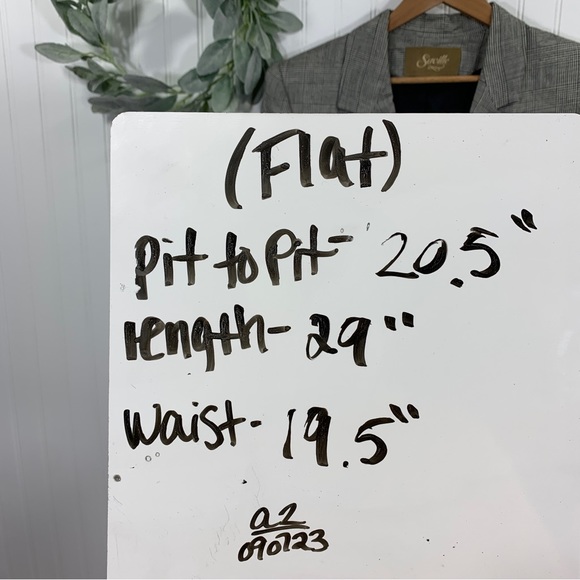 (Flat)
Pit to Pit- 20.5"
length- 29"
Waist- 19.5"
a2
090723